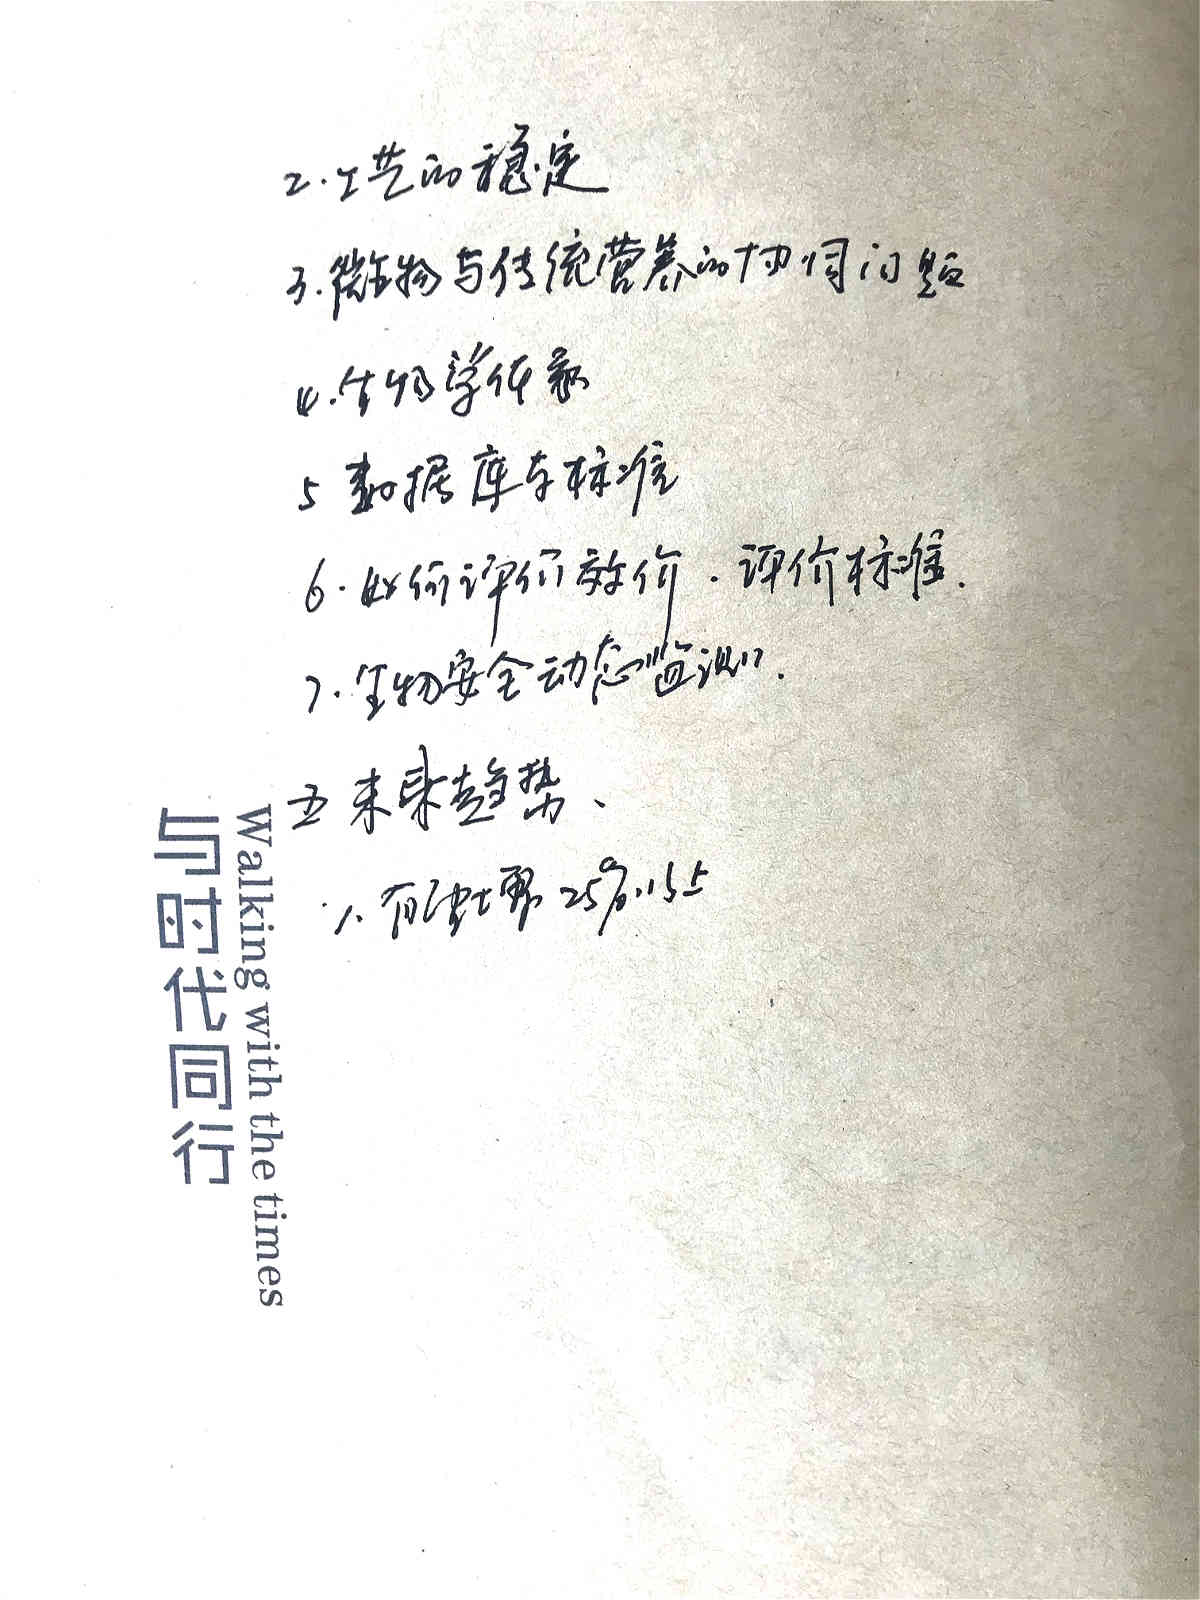 2.工艺的稳定
3.微生物与传统营养的协同问题
4.生物学体系
5 数据库与标准
6.如何评价效价.评价标准.
7.生物安全动态监测.
五未来趋势、
1.有 25%以上
与时代同行
Walking with the times